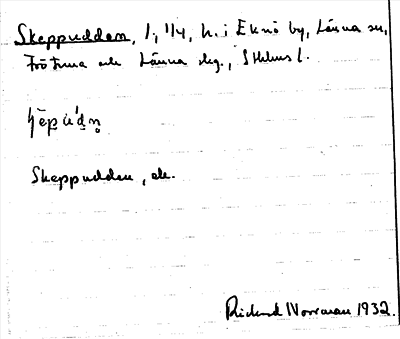 Skeppudden, 1, 1/4, h. i Eknö by, Länna sn,
Frötuna och Länna skg., Sthlms l.
Skeppudden, ek.
Rickard Norrman 1932.